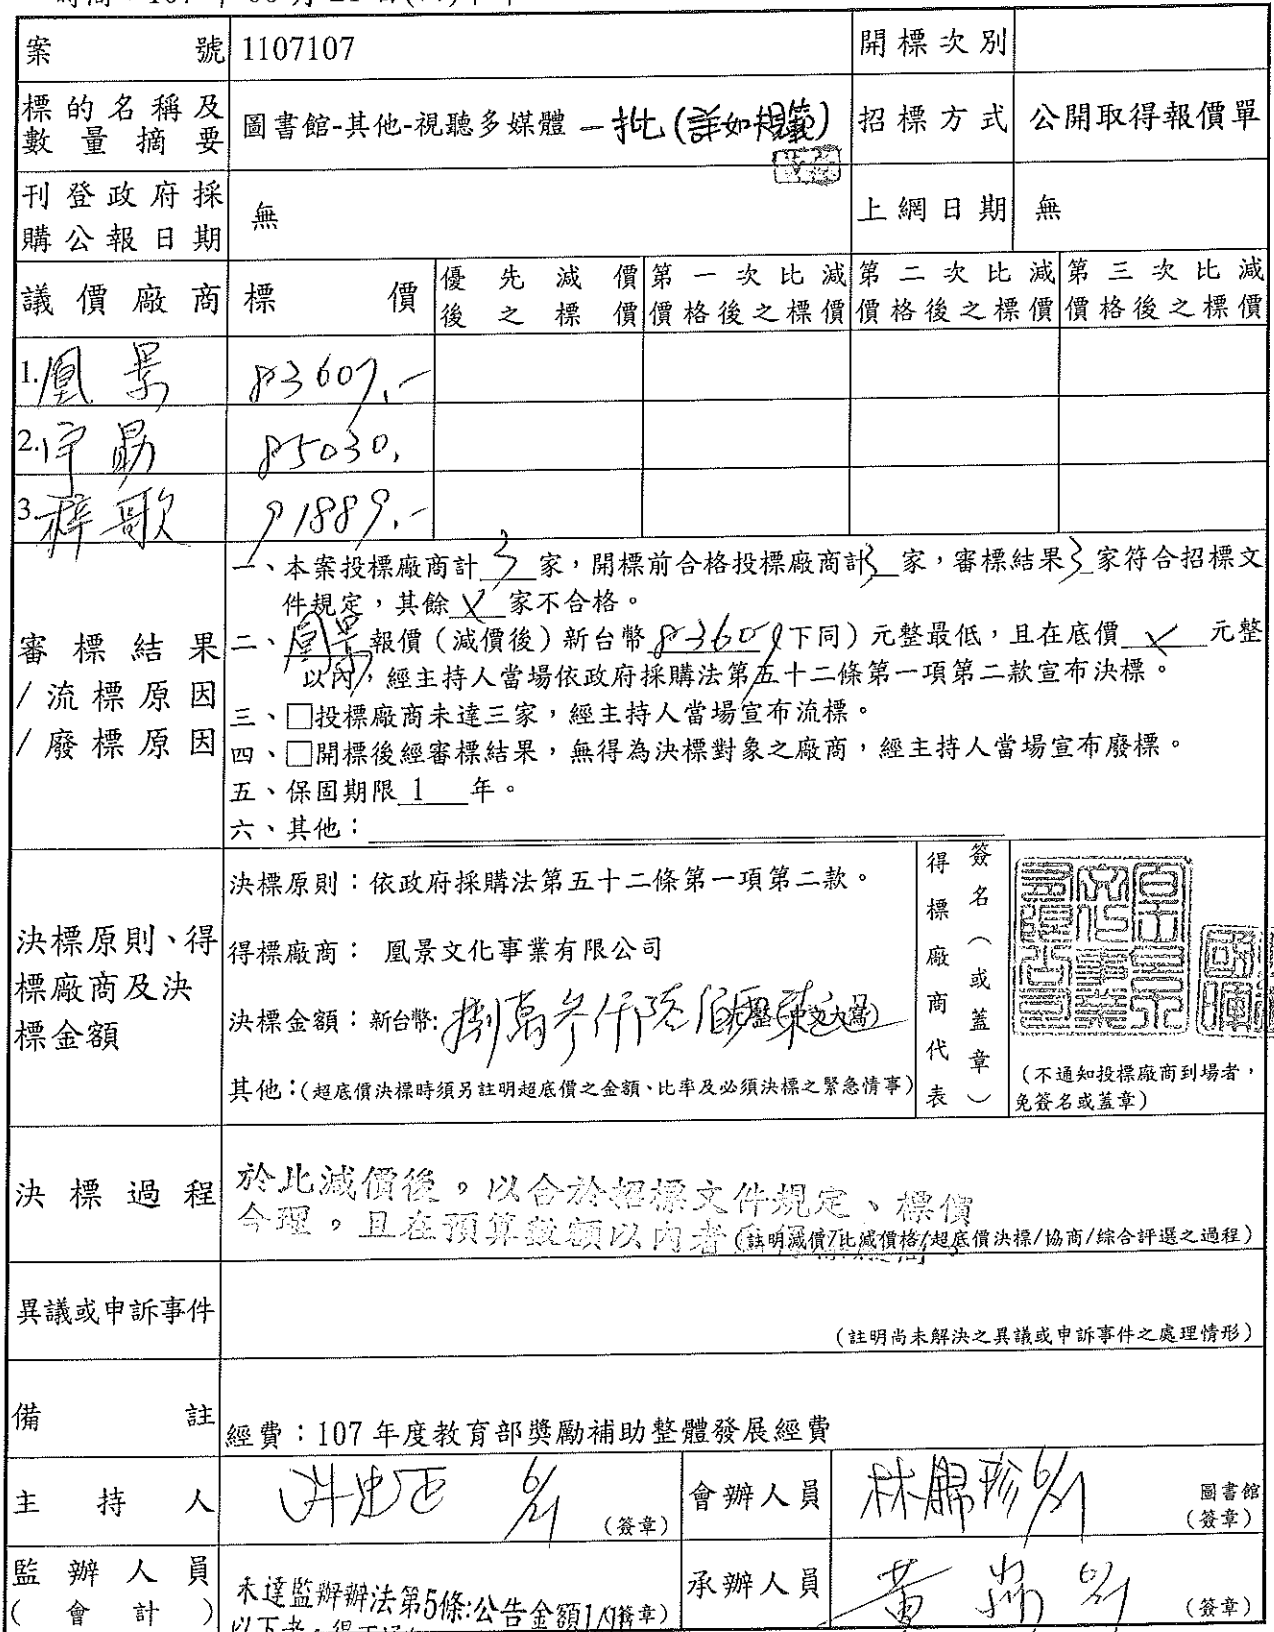 案號 1107107 開標次別
標的名稱及數量摘要 圖書館-其他-視聽多媒體 一批(詳如規範) 招標方式 公開取得報價單
刊登政府採購公報日期 無 上網日期 無
議價廠商 標價 優先減價後之標價 第一次比減價格後之標價 第二次比減價格後之標價 第三次比減價格後之標價
1.凰景 83609.-
2.宇勛 85030.
3.梓歌 91889.-
審標結果/流標原因/廢標原因
一、本案投標廠商計 3 家,開標前合格投標廠商計 3 家,審標結果 3 家符合招標文
件規定,其餘 X 家不合格。
二、凰景 報價(減價後)新台幣 83609 (下同)元整最低,且在底價 X 元整
以內,經主持人當場依政府採購法第五十二條第一項第二款宣布決標。
三、□投標廠商未達三家,經主持人當場宣布流標。
四、□開標後經審標結果,無得為決標對象之廠商,經主持人當場宣布廢標。
五、保固期限 1 年。
六、其他:
決標原則、得標廠商及決標金額
決標原則:依政府採購法第五十二條第一項第二款。
得標廠商: 凰景文化事業有限公司
決標金額:新台幣:捌萬參仟陸佰
其他:(超底價決標時須另註明超底價之金額、比率及必須決標之緊急情事)
得標廠商代表 簽名(或蓋章)
(不通知投標廠商到場者,
免簽名或蓋章)
決標過程
於比減價後,以合於招標文件規定、標價
合理,且在預算數額以內者
(註明減價/比減價格/超底價決標/協商/綜合評選之過程)
異議或申訴事件
(註明尚未解決之異議或申訴事件之處理情形)
備註 經費:107 年度教育部獎勵補助整體發展經費
主持人 6/21 (簽章) 會辦人員 林錦珍 6/21 圖書館
(簽章)
監辦人員
(會計) 未達監辦辦法第5條:公告金額1/ 簽章) 承辦人員 黃 6/21 (簽章)